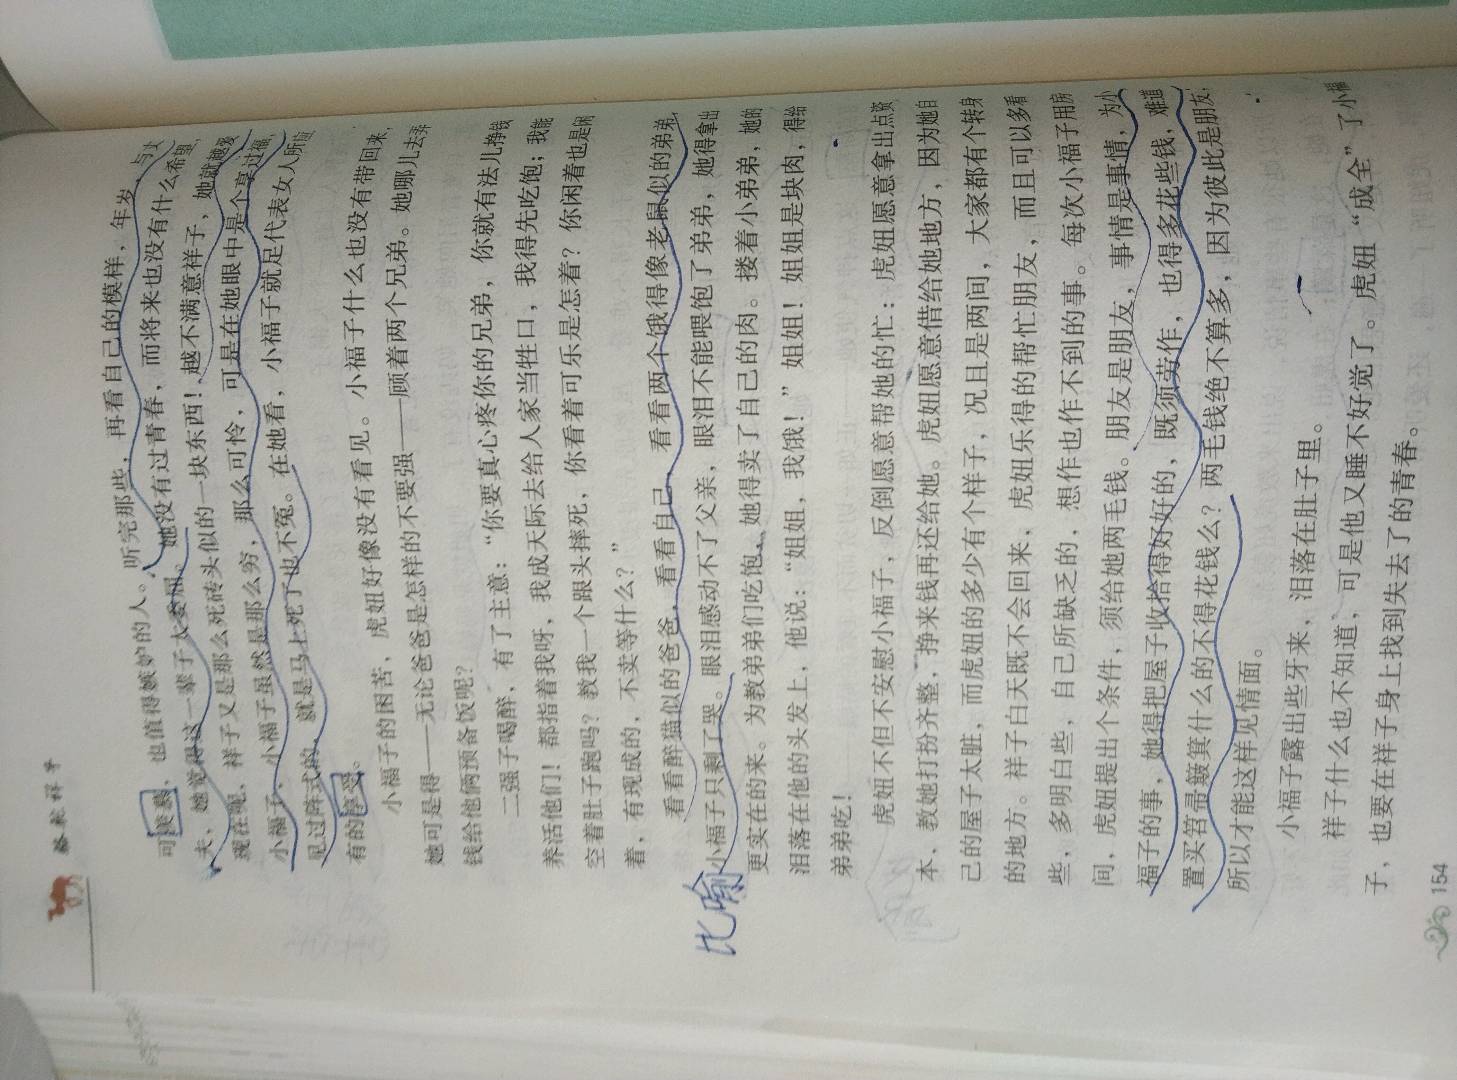 骆驼祥子
可羡慕，也值得嫉妒的人。听完那些，再看自己的模样，年岁，与丈
夫，她觉得这一辈子太委屈。她没有过青春，而将来也没有什么希望，
现在呢，祥子又是那么死砖头似的一块东西！越不满意祥子，她就越爱
小福子，小福子虽然是那么穷，那么可怜，可是在她眼中是个享过福，
见过阵式的，就是马上死了也不冤。在她看，小福子就足代表女人所应
有的享受。
小福子的困苦，虎妞好像没有看见。小福子什么也没有带回来，
她可是得——无论爸爸是怎样的不要强——顾着两个兄弟。她哪儿去弄
钱给他俩预备饭呢？
二强子喝醉，有了主意：“你要真心疼你的兄弟，你就有法儿挣钱
养活他们！都指着我呀，我成天际去给人家当牲口，我得先吃饱；我能
空着肚子跑吗？教我一个跟头摔死，你看着可乐是怎着？你闲着也是闲
着，有现成的，不卖等什么？”
看看醉猫似的爸爸，看看自己，看看两个饿得像老鼠似的弟弟，
小福子只剩了哭。眼泪感动不了父亲，眼泪不能喂饱了弟弟，她得拿出
更实在的来。为教弟弟们吃饱，她得卖了自己的肉。搂着小弟弟，她的
泪落在他的头发上，他说：“姐姐，我饿！”姐姐！姐姐是块肉，得给
弟弟吃！
比喻
虎妞不但不安慰小福子，反倒愿意帮她的忙：虎妞愿意拿出点资
本，教她打扮齐整，挣来钱再还给她。虎妞愿意借给她地方，因为她自
己的屋子太脏，而虎妞的多少有个样子，况且是两间，大家都有个转身
的地方。祥子白天既不会回来，虎妞乐得的帮忙朋友，而且可以多看
些，多明白些，自己所缺乏的，想作也作不到的事。每次小福子用房
间，虎妞提出个条件，须给她两毛钱。朋友是朋友，事情是事情，为小
福子的事，她得把屋子收拾得好好的，既须劳作，也得多花些钱，难道
置买笤帚簸箕什么的不得花钱么？两毛钱绝不算多，因为彼此是朋友，
所以才能这样见情面。
小福子露出些牙来，泪落在肚子里。
祥子什么也不知道，可是他又睡不好觉了。虎妞“成全”了小福
子，也要在祥子身上找到失去了的青春。
154